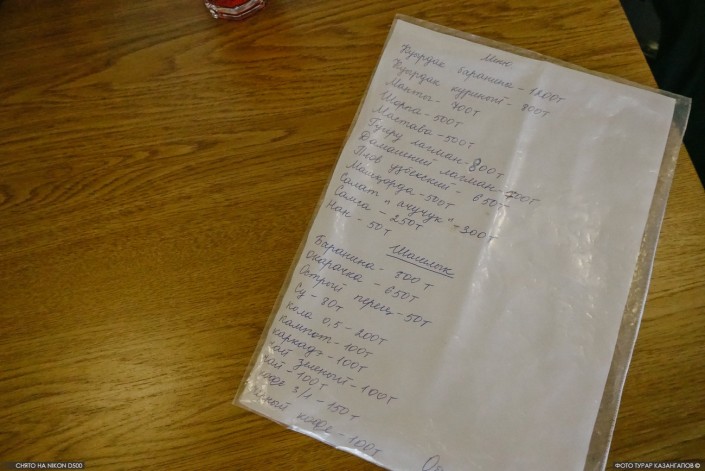 Меню
Куырдак баранина - 1200т
Куырдак куриный - 800т
Манты - 700т
Шорпа - 500т
Мастава - 500т
Гуйру лагман - 800т
Домашний лагман - 700т
Плов узбекский - 650т
Машхорда - 500т
Салат "ачучук" - 300т
Самса - 250т
Нан - 50т
Шашлык
Баранина - 800т
Окарачка - 650т
Острый перец - 50т
Су - 80т
Кола 0,5 - 200т
Кампот - 100т
каркадэ - 100т
чай зеленый - 100т
чай - 100т
кофе 3/1 - 150т
кофе - 100т
СНЯТО НА NIKON D500
ФОТО ТУРАР КАЗАНГАПОВ ©